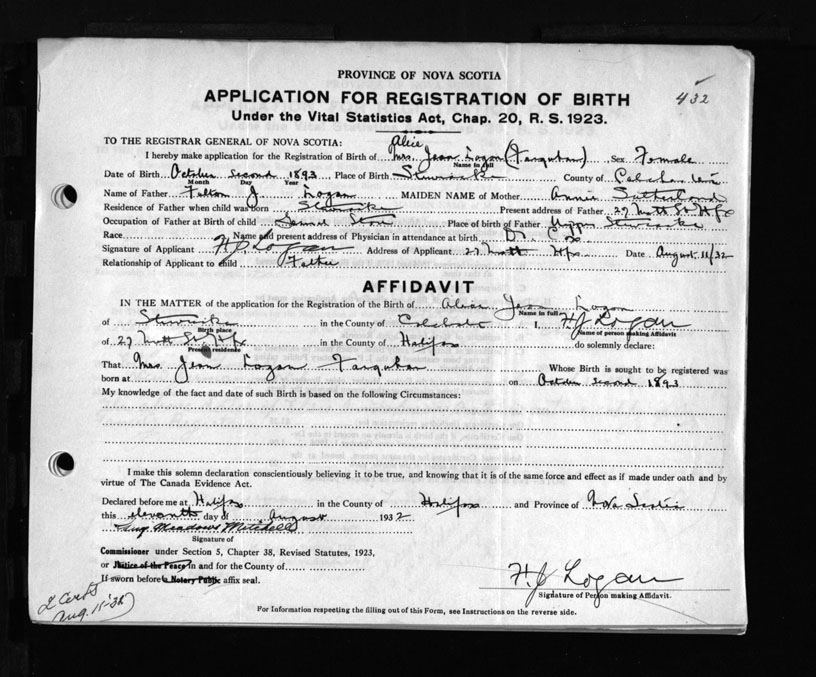 PROVINCE OF NOVA SCOTIA
APPLICATION FOR REGISTRATION OF BIRTH
432
Under the Vital Statistics Act, Chap. 20, R. S. 1923.
TO THE REGISTRAR GENERAL OF NOVA SCOTIA:
Alice
I hereby make application for the Registration of Birth of Mrs. Jean Logan (Farquhar) Sex Female
Name in full
Date of Birth October second 1893 Place of Birth Stewiacke County of Colchester
Month Day Year
Name of Father J. Logan MAIDEN NAME of Mother Annie Sutherland
Residence of Father when child was born Stewiacke Present address of Father 27 St Hfx
Occupation of Father at Birth of child Place of birth of Father Upper Stewiacke
Race Name and present address of Physician in attendance at birth Dr. Cox
Signature of Applicant F J Logan Address of Applicant 27 Hfx Date August 11/32
Relationship of Applicant to child Father
AFFIDAVIT
IN THE MATTER of the application for the Registration of the Birth of Alice Jean Logan
Name in full
of Stewiacke in the County of Colchester I, F J Logan
Birth place Name of person making Affidavit
of 27 St Hfx in the County of Halifax do solemnly declare:
Present residence
That Mrs. Jean Logan Farquhar Whose Birth is sought to be registered was
born at on October second 1893
My knowledge of the fact and date of such Birth is based on the following Circumstances:
I make this solemn declaration conscientiously believing it to be true, and knowing that it is of the same force and effect as if made under oath and by
virtue of The Canada Evidence Act.
Declared before me at Halifax in the County of Halifax and Province of Nova Scotia
this eleventh day of August 1932
Meadows Mitchell
Signature of
Commissioner under Section 5, Chapter 38, Revised Statutes, 1923,
or Justice of the Peace in and for the County of
If sworn before a Notary Public affix seal.
F J Logan
Signature of Person making Affidavit.
2 Certs
Aug. 11-32
For Information respecting the filling out of this Form, see Instructions on the reverse side.